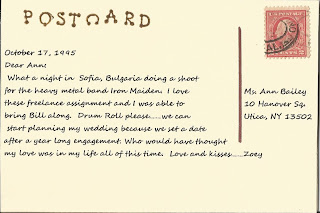 POSTCARD
October 17, 1995
Dear Ann:
What a night in Sofia, Bulgaria doing a shoot
for the heavy metal band Iron Maiden. I love
these freelance assignment and I was able to
bring Bill along. Drum Roll please.....we can
start planning my wedding because we set a date
after a year long engagement. Who would have thought
my love was in my life all this time. Love and kisses.....Zoey
Ms. Ann Bailey
10 Hanover Sq.
Utica, NY 13502